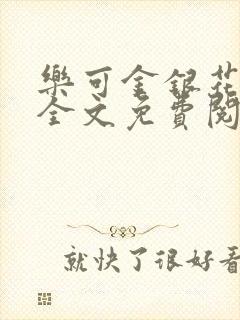 樂可金銀花
全文免費閱
就快了很好看